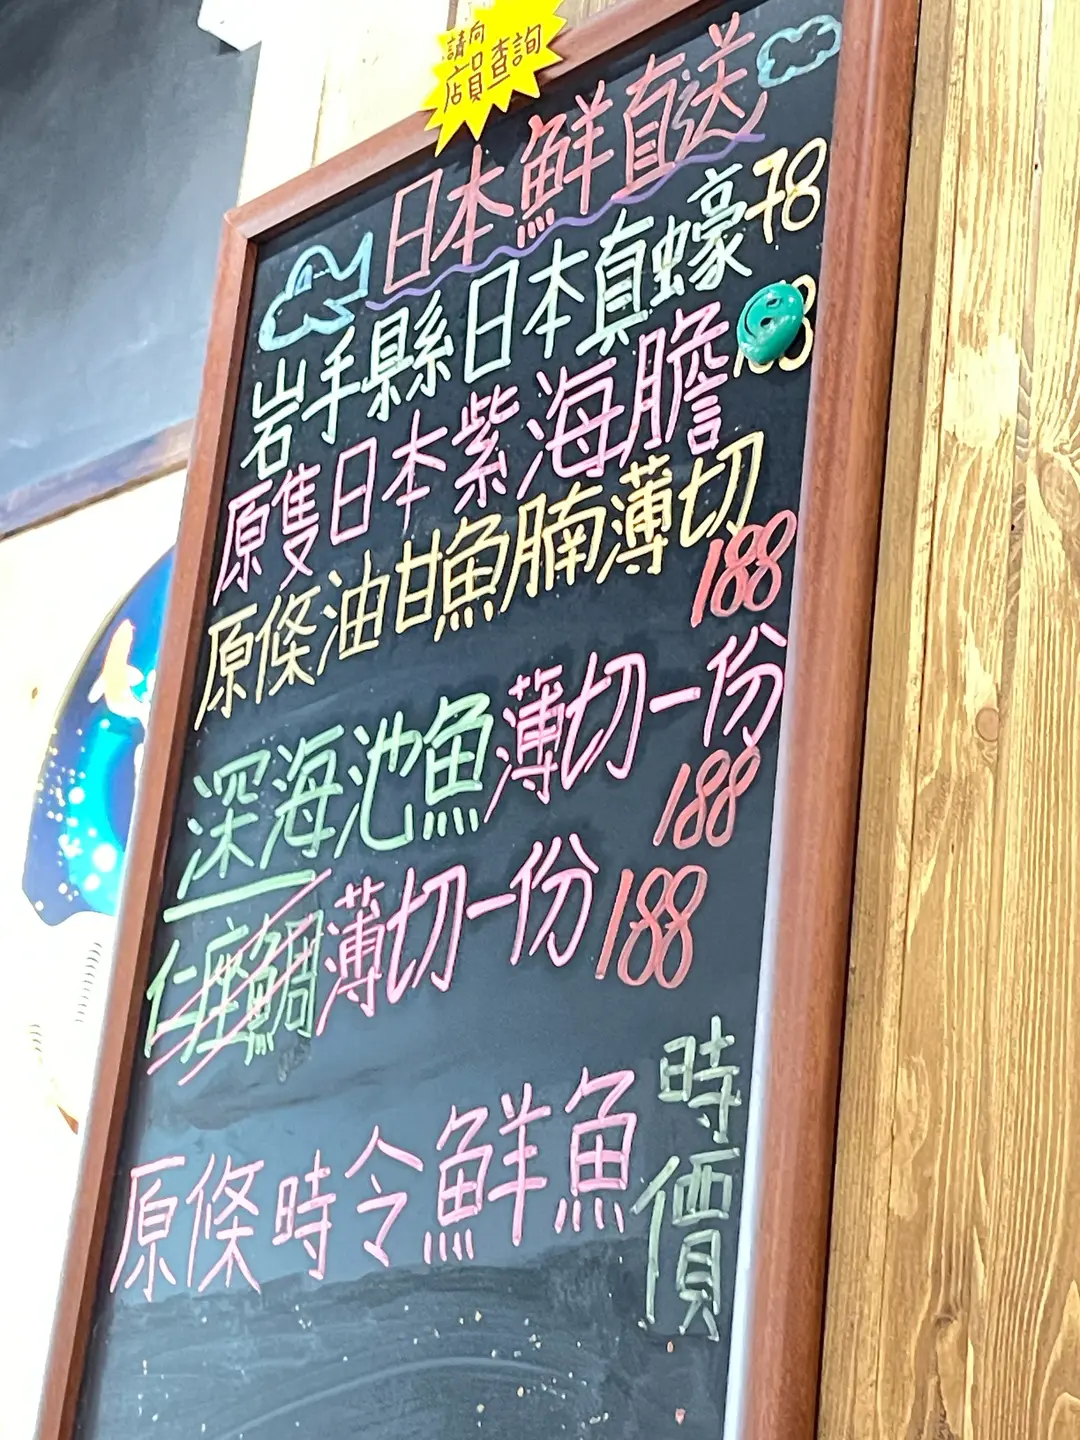 請向
店員查詢
日本鮮直送
岩手縣日本真蠔78
原隻日本紫海膽
原條油甘魚腩薄切
188
深海池魚薄切一份
188
仁座鯛薄切一份188
原條時令鮮魚
時價